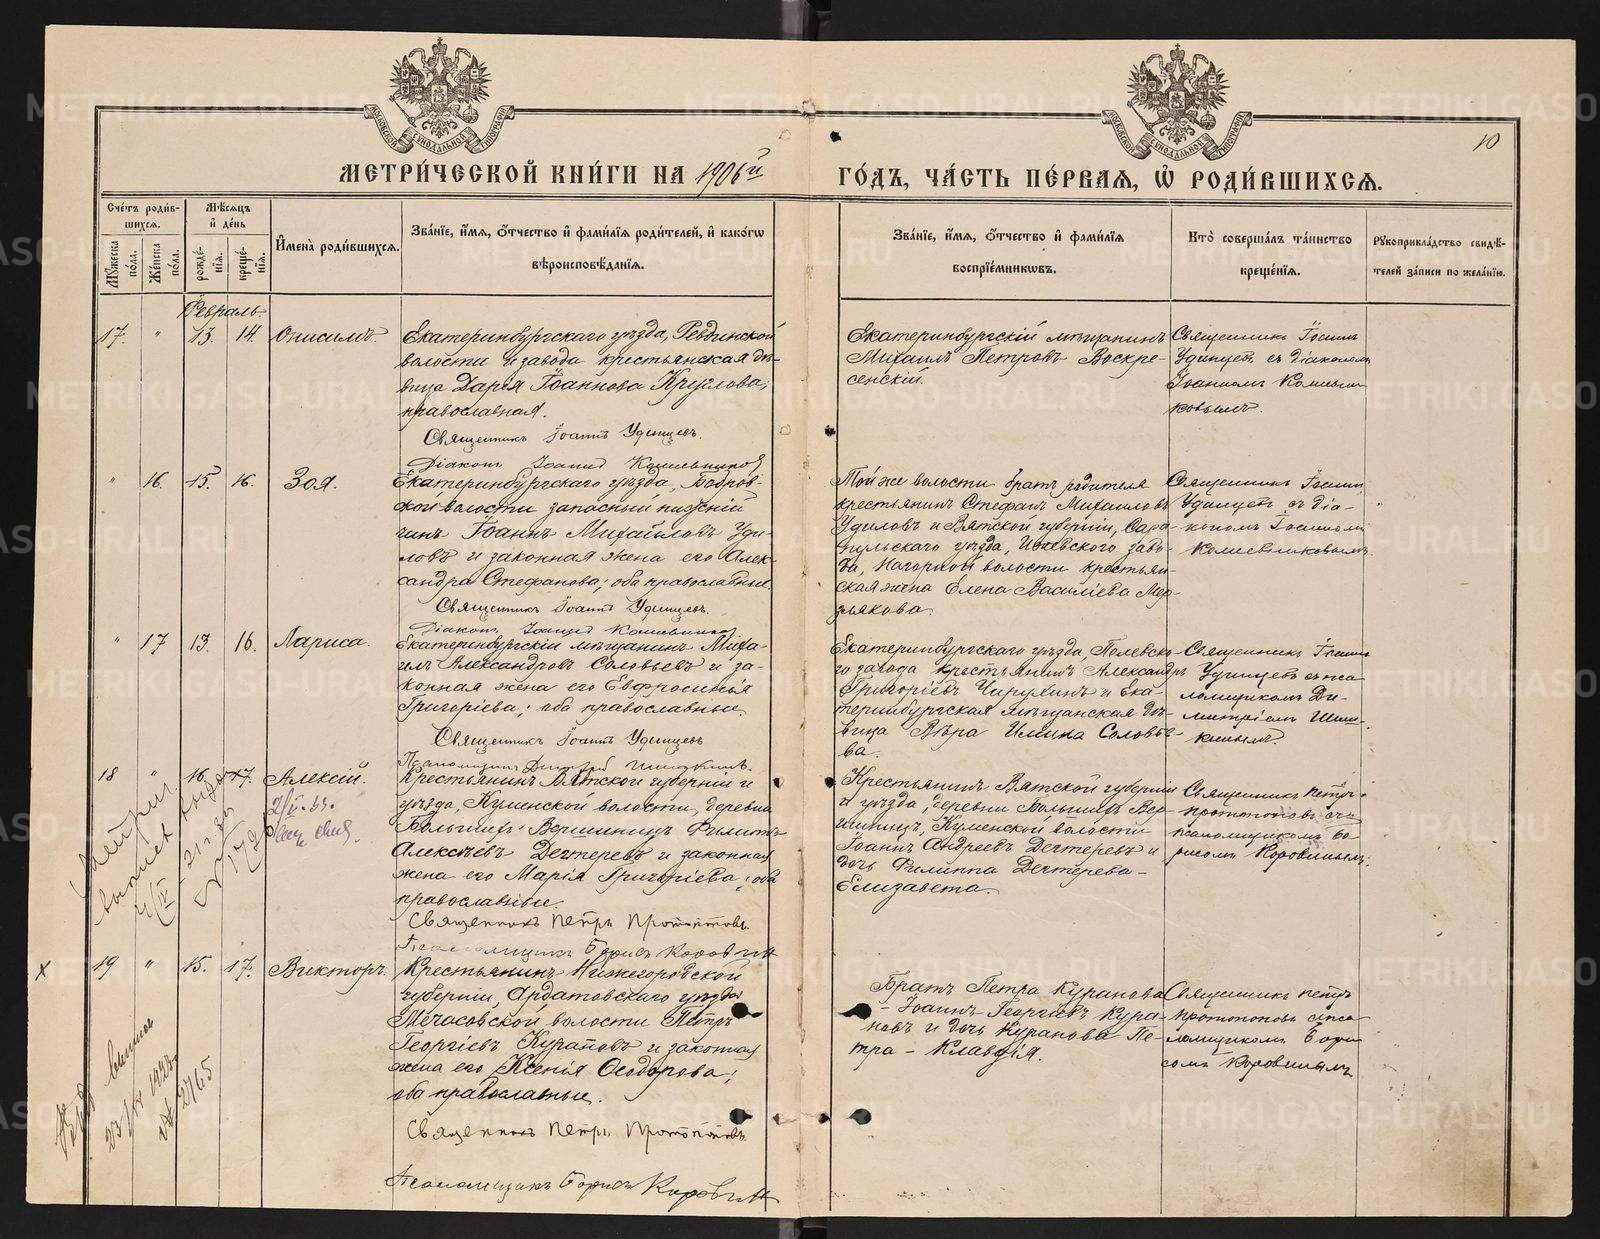 МОСКОВСКОЙ СѴНОДАЛЬНОЙ ТИПОГРАФІИ
МОСКОВСКОЙ СѴНОДАЛЬНОЙ ТИПОГРАФІИ
10
МЕТРИ́ЧЕСКОЙ КНИ́ГИ НА 1906й
ГО́ДЪ, ЧА́СТЬ ПЕ́РВАЯ, Ѡ РОДИ́ВШИХСѦ.
Сче́тъ роди́в-
шихсѧ.
Мꙋ́жеска по́ла.
Же́нска по́ла.
Мѣ́сѧцъ
и҆ де́нь
рожде́-
нїѧ.
креще́-
нїѧ.
И҆мена̀ роди́вшихсѧ.
Зва́нїе, и҆́мѧ, ѻ҆́тчество и҆ фами́лїѧ роди́телей, и҆ како́гѡ
вѣроисповѣ́данїѧ.
Зва́нїе, и҆́мѧ, ѻ҆́тчество и҆ фами́лїѧ
воспрїе́мникѡвъ.
Кто̀ соверша́лъ та́инство
креще́нїѧ.
Рꙋкоприкла́дство свидѣ́-
телей за́писи по жела́нїю.
Февраль.
17. " 13. 14. Онисимъ.
Екатеринбургскаго уѣзда, Ревдинской
волости и завода крестьянская дѣ-
вица Дарія Іоаннова Круглова,
православная.
Священникъ Іоаннъ Удинцевъ.
Діаконъ Іоаннъ Кошельниковъ
Екатеринбургскій мѣщанинъ
Михаилъ Петровъ Воскре-
сенскій.
Священникъ Іоаннъ
Удинцевъ съ діакономъ
Іоанномъ
" 16. 15. 16. Зоя.
Екатеринбургскаго уѣзда, Бобров-
ской волости запасный нижній
чинъ Іоаннъ Михайловъ Уди-
ловъ и законная жена его Алек-
сандра Стефанова; оба православные.
Священникъ Іоаннъ Удинцевъ.
Діаконъ Іоаннъ
Той же волости братъ родителя
крестьянинъ Стефанъ Михаиловъ
Удиловъ и Вятской губерніи, Сара-
пульскаго уѣзда, Ижевскаго заво-
да, Нагорной волости крестьян-
ская жена Елена Василіева Мер-
злякова.
Священникъ Іоаннъ
Удинцевъ съ діа-
кономъ Іоанномъ
" 17 13. 16. Лариса.
Екатеринбургскій мѣщанинъ Миха-
илъ Александровъ Соловьевъ и за-
конная жена его Евфросинія
Григоріева; оба православные.
Священникъ Іоаннъ Удинцевъ
Псаломщикъ Димитрій
Екатеринбургскаго уѣзда, Полевско-
го завода крестьянинъ Александръ
Григоріевъ Чирухинъ и Ека-
теринбургская мѣщанская дѣ-
вица Вѣра Ильина Соловье-
ва.
Священникъ Іоаннъ
Удинцевъ съ пса-
ломщикомъ Ди-
митріемъ
18 " 16. 17. Алексій.
Крестьянинъ Вятской губерніи и
уѣзда, Куменской волости, деревни
Большихъ Вершининъ Филиппъ
Алексѣевъ Дегтеревъ и законная
жена его Марія Григоріева; оба
православные.
Священникъ Петръ Протопоповъ.
Псаломщикъ Борисъ Коровинъ
Крестьянинъ Вятской губерніи
и уѣзда, деревни Большихъ Вер-
шининъ, Куменской волости
Іоаннъ Андреевъ Дегтеревъ и
дочь Филиппа Дегтерева -
Елизавета.
Священникъ Петръ
Протопоповъ съ
псаломщикомъ Бо-
рисомъ Коровинымъ.
х 19 " 15. 17. Викторъ.
Крестьянинъ Нижегородской
губерніи, Ардатовскаго уѣзда
Мечасовской волости Петръ
Георгіевъ Курановъ и законная
жена его Ксенія Ѳеодорова;
оба православные.
Священникъ Петръ Протопоповъ
Псаломщикъ Борисъ Коровинъ
Братъ Петра Куранова
- Іоаннъ Георгіевъ Кура-
новъ и дочь Куранова Пе-
тра - Клавдія.
Священникъ Петръ
Протопоповъ съ пса-
ломщикомъ Бори-
сомъ Коровинымъ
№ 2765
METRIKI.GASO-URAL.RU